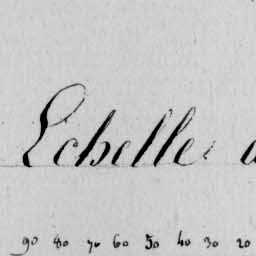 Echelle
90 80 70 60 50 40 30 20